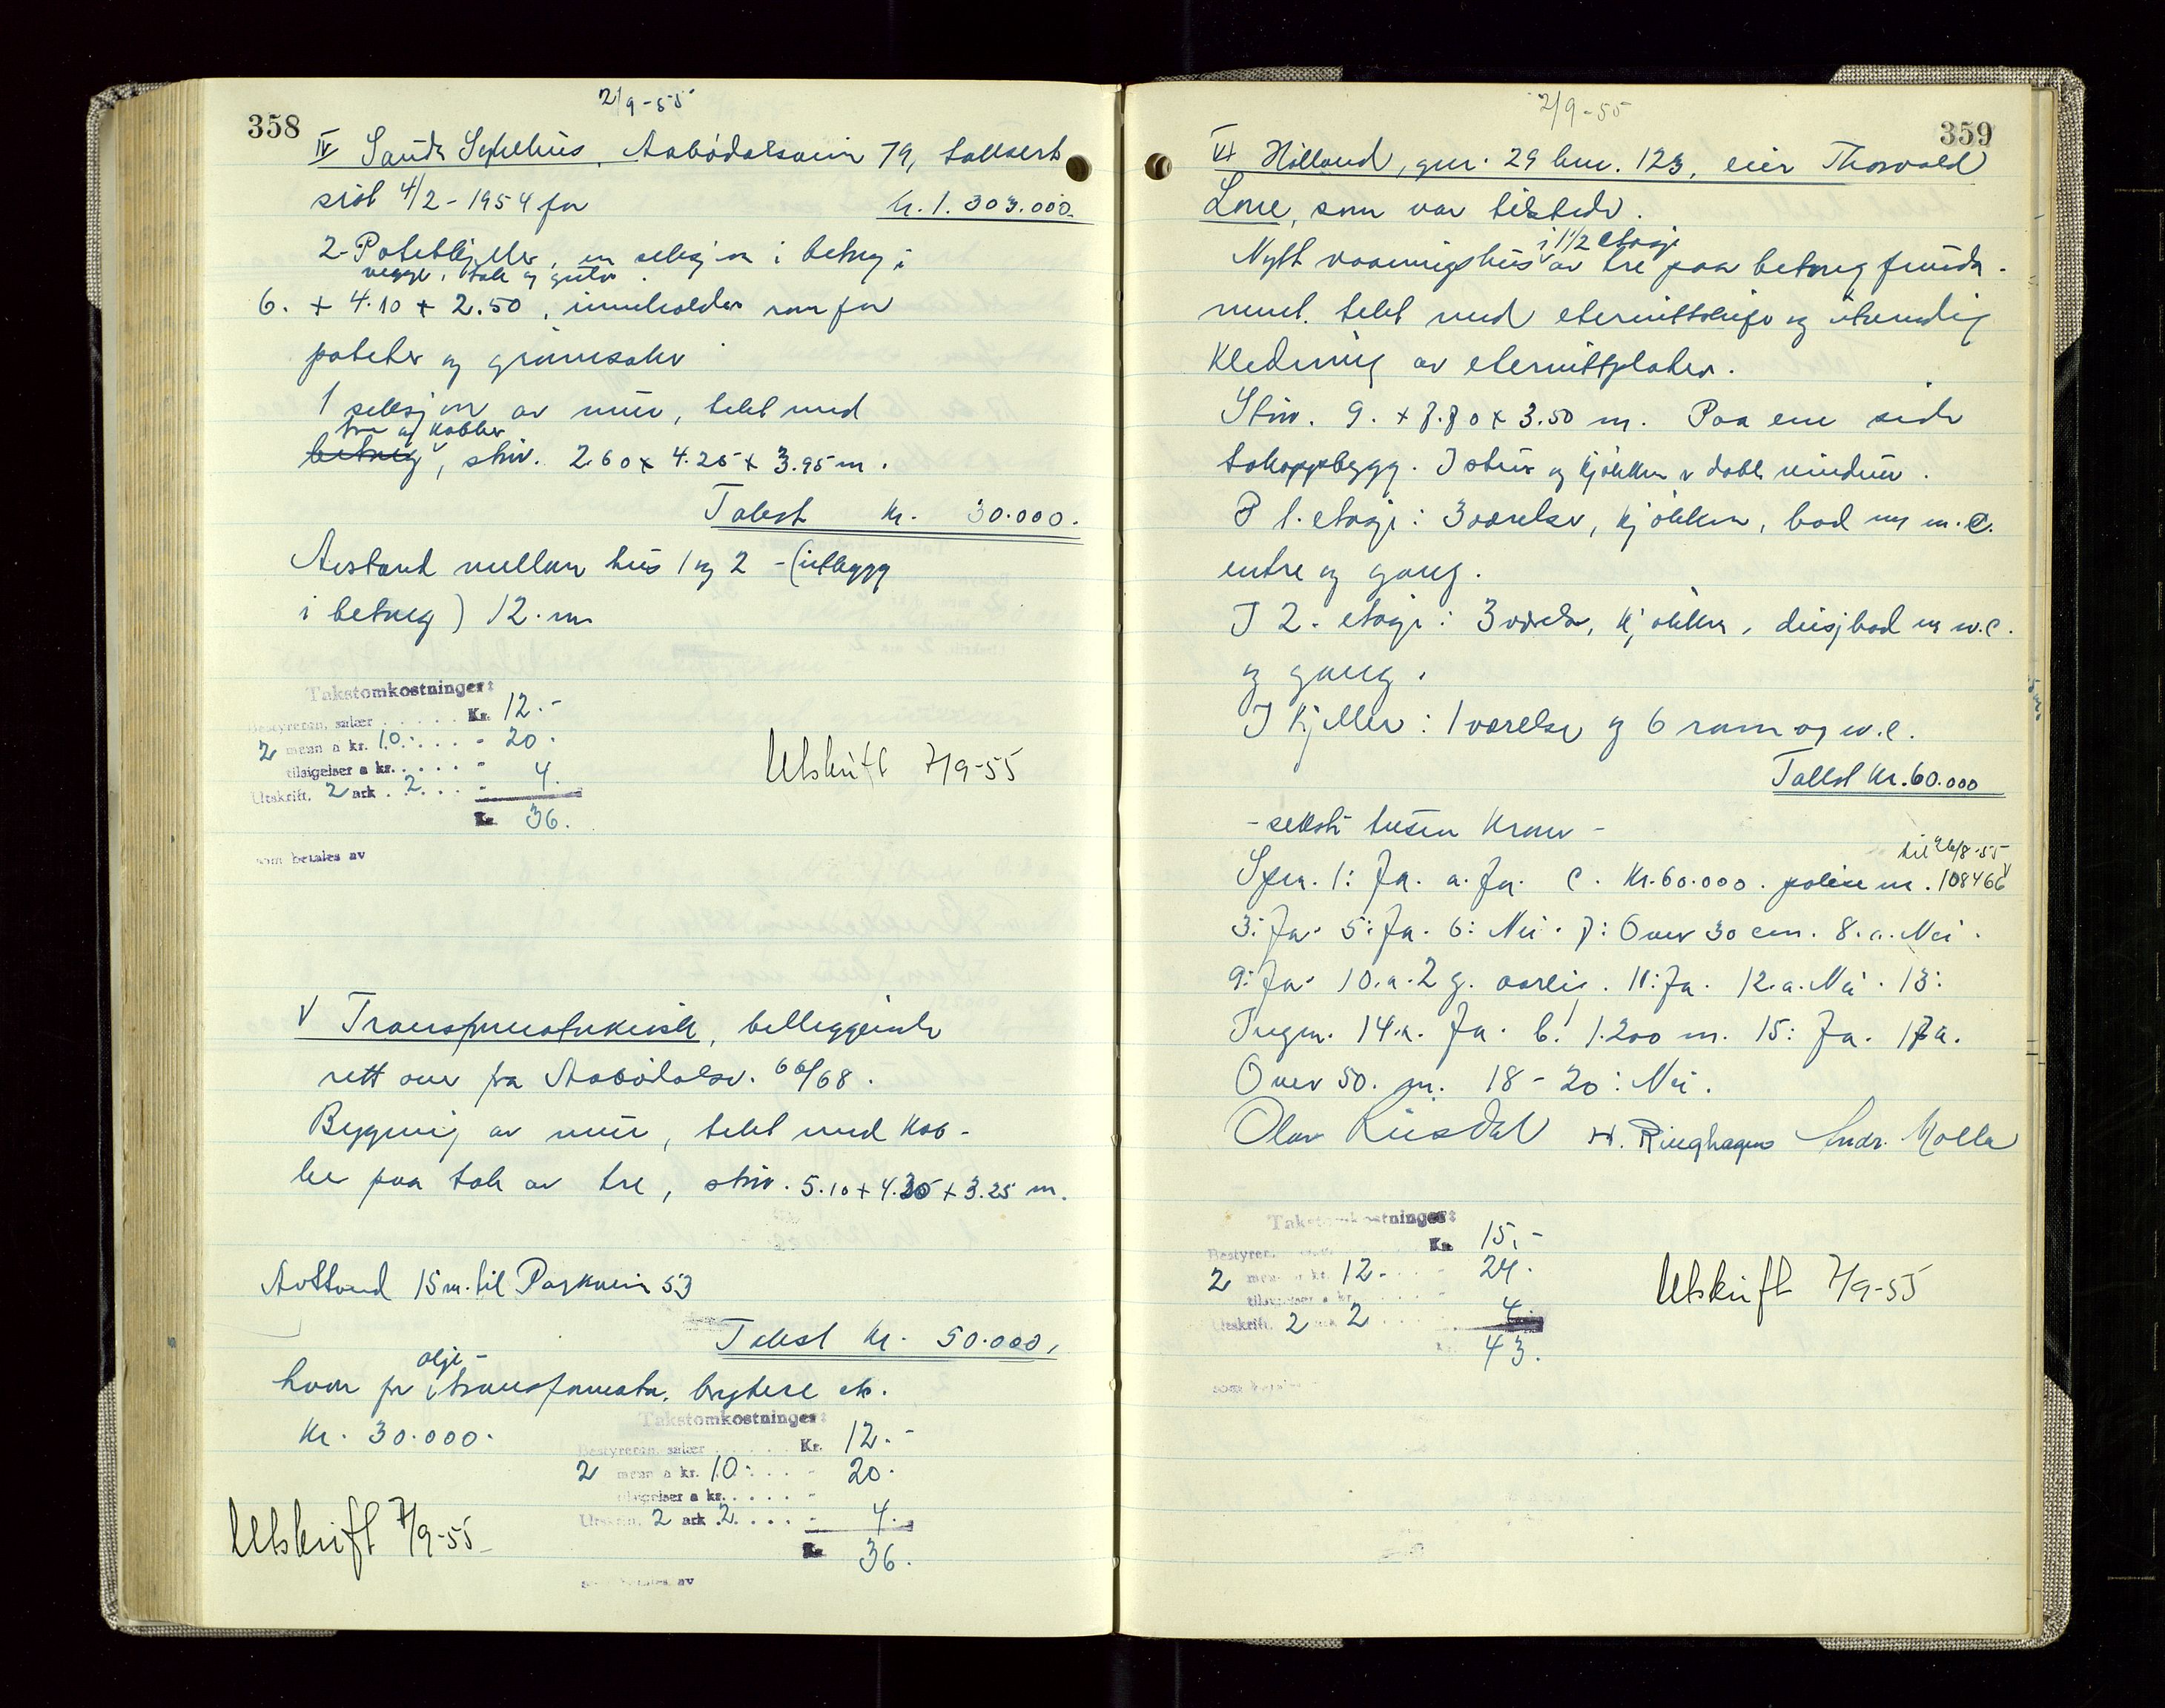 358
2/9-55
IV Sauda Sykehus, Aabødalsveien 79, taksert
sist 4/2-1954 for Kr. 1.303.000.
2-Potetkjeller, en seksjon i betong i
vegge, tak og gulv
6. + 4.10 + 2.50, inneholder rom for
poteter og grønnsaker
1 seksjon av mur, tekt med
tre og kobber
betong, stør. 2.60 x 4.25 x 3.95 m.
Takst Kr. 30.000.
Avstand mellom hus 1 og 2 - (utbygg
i betong) 12. m
Takstomkostninger:
Bestyreren, salær Kr. 12.-
2 menn a kr. 10. - 20.
tilsigelser a kr. -
Utskrift. 2 ark. 2. - 4.
Kr. 36.
som betales av
Utskrift 7/9-55
V Transformatorkiosk, beliggende
rett over fra Aabødalsv. 66/68.
Bygning av mur, tekt med kob-
ber paa tak av tre, stør. 5.10 + 4.35 + 3.25 m.
Avstand 15 m. til Parkvein 53
Takst Kr. 50.000.
olje-
hvor for transformator, brytere etc.
Kr. 30.000.
Takstomkostninger:
Bestyreren, salær Kr. 12.-
2 menn a kr. 10. - 20.
tilsigelser a kr. -
Utskrift. 2 ark. 2. - 4.
Kr. 36.
som betales av
Utskrift 7/9-55
359
2/9-55
VI Hølland, gnr. 29 bnr. 123, eier Thorvald
Lone, som var tilstede.
i 1 1/2 etasje
Nytt vaaningshus av tre paa betong funda-
ment. tekt med eternittskifer og utvendig
kledning av eternittplater.
Stør. 9. + 7.70 x 3.50 m. Paa ene side
takoppbygg. I stue og kjøkken v dobb vinduer.
I 1. etasje: 3 værelser, kjøkken, bad og w.c.
entre og gang.
I 2. etasje: 3 værelser, kjøkken, dusjbad og w.c.
og gang.
I kjeller: 1 værelse og 6 rom og w.c.
Takst Kr. 60.000
- seksti tusen kroner -
til 26/8-55
Spm. 1: Ja. a. Ja. c. Kr. 60.000. polise nr. 108466
3: Ja. 5: Ja. 6: Nei. 7: Over 30 cm. 8. a. Nei.
9: Ja. 10. a. 2 g. aarlig. 11: Ja. 12. a. Nei. 13:
Ingen. 14. a. Ja. b. 1.200 m. 15: Ja. 17a.
Over 50. m. 18-20: Nei.
Olav Riisdal H. Ringhagen Andr. Molla
Takstomkostninger:
Bestyrer. Kr. 15,-
2 menn a kr. 12. - 24.
tilsigelser a kr.
Utskrift. 2 ark 2 4.
43.
som betales
Utskrift 7/9-55